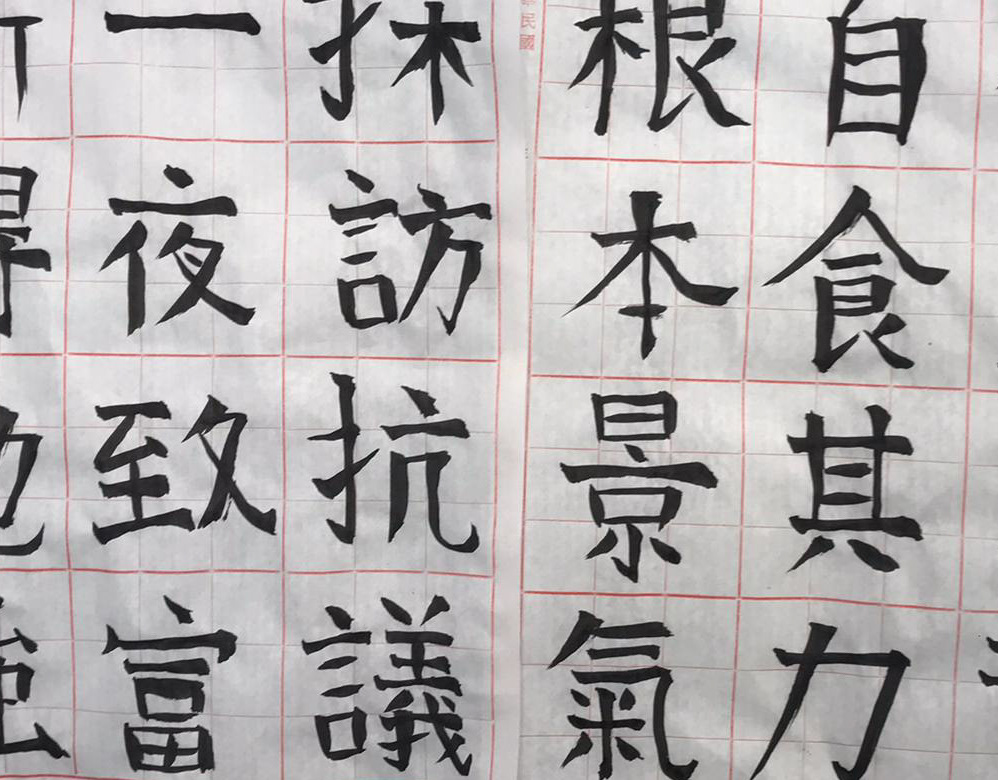 自食其力
根本景氣
民國
採訪抗議
一夜致富